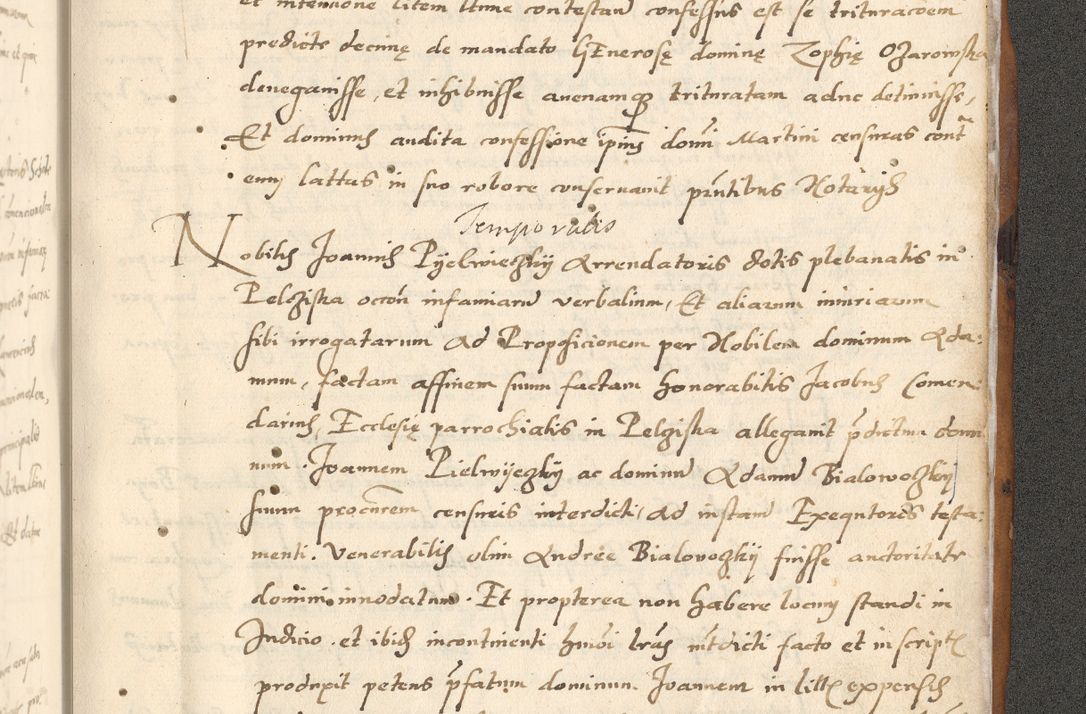 et intencione litem ltime contestand confessus est se trituracoem
predicte decimę de mandato GEnerosę dominę Zophię Ożarowska
deneganisse, et inhibuisse avenamqz trituratam adhuc detinuisse,
Et dominus audita confessione ipius domi Martini censuras cont
eum lattas in suo robore conservavit pntibus Notarys
Temporalis
Nobilis Joannis Pyelwieczky Arrendatoris dotis plebanalis in
Pelczyska occon infamiaru verbalium, Et aliarum iniuriarum
sibi irrogatarum ad Proposicionem per Nobilem dominum Ada:
mum, factam affinem suum factam honorabilis Jacobus Comen:
darius, Ecclesię parrochialis in Pelczyska allegavit pdictum domi
num. Joannem Pielwyeczky ac dominu Adamu Bialowoczky
suum procurem censuris interdicti, ad instand Exequtores testa:
menti. Venerabilis olim Andree Bialowoczky fuisse auctoritate
domini innodatum. Et propterea non habere locum standi in
Judicio. et ibid incontinenti hmoi lras intdicti facto et in script
produxit petens pfatum dominum Joannem in litt expensis